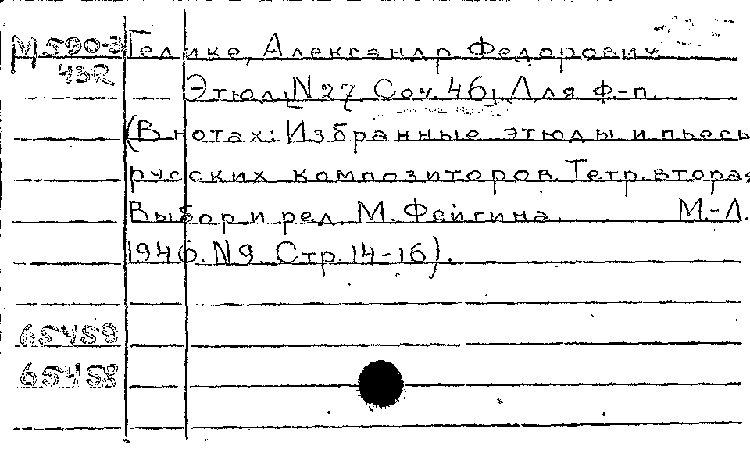 М 590-3 Гедике, Александр Федорович
432 Этюд, N27 Соч. 46, Для ф-п.
(В нотах: Избранные этюды и пьесы
русских композиторов. Тетр. вторая
Выбор и ред. М. Фейгина. М.-Л.
1946. N9. Стр. 14-16).
65459
65458